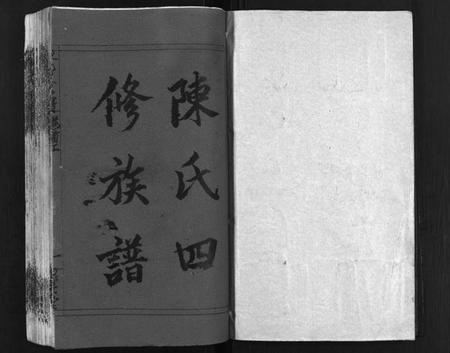 陳氏四
修族譜